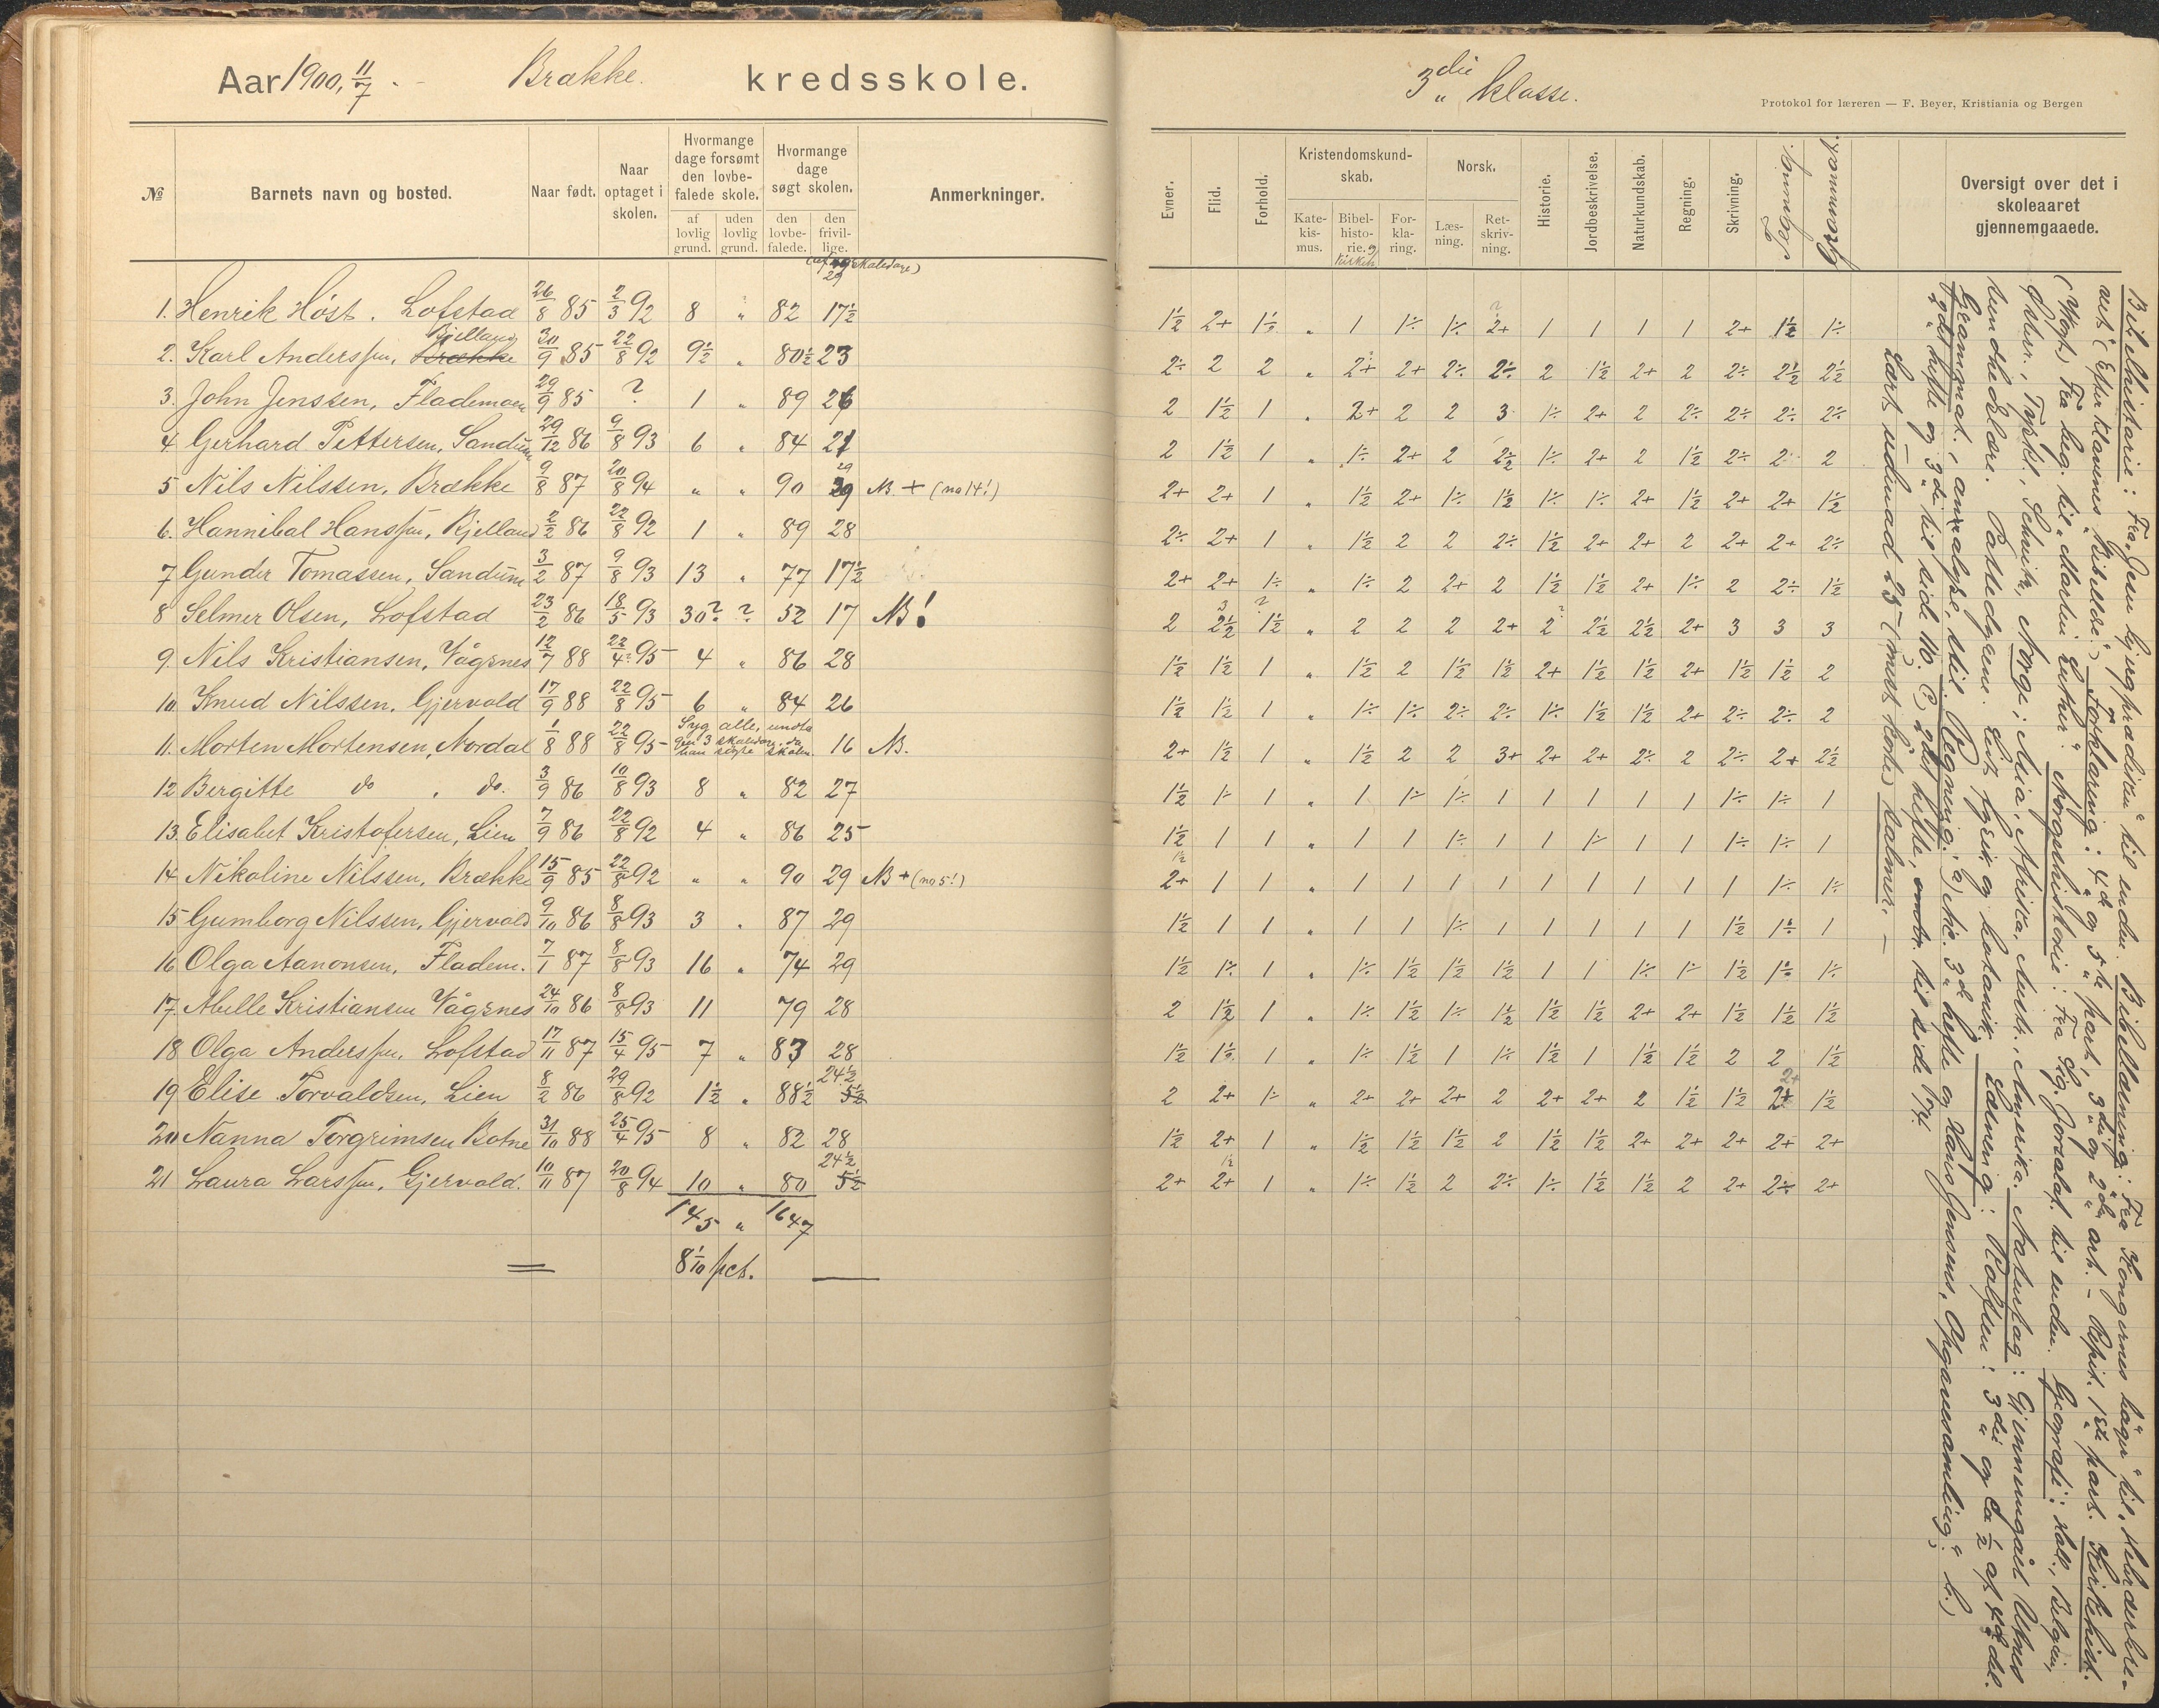 Aar 1900, 11/7. - Brække. kredsskole.
3die klasse.
Protokol for læreren — F. Beyer, Kristiania og Bergen
№ Barnets navn og bosted. Naar født. Naar optaget i skolen. Hvormange dage forsømt den lovbefalede skole. af lovlig grund. uden lovlig grund. Hvormange dage søgt skolen. den lovbefalede. den frivillige. Anmerkninger.
Evner. Flid. Forhold. Kristendomskundskab. Katekismus. Bibelhistorie. Forklaring. Norsk. Læsning. Retskrivning. Historie. Jordbeskrivelse. Naturkundskab. Regning. Skrivning. Oversigt over det i skoleaaret gjennemgaaede.
1. Henrik Høst. Lofstad 26/8 85 2/3 92 8 „ 82 17½
2. Karl Anderssen, Bjelland 30/9 85 22/8 92 9½ „ 80½ 23
3. John Jenssen, Flademoen 29/9 85 ? 1 „ 89 26
4 Gerhard Pettersen, Sandum 29/12 86 9/8 93 6 „ 84 21
5 Nils Nilssen, Brække 9/8 87 20/8 94 „ „ 90 29 NB + (no 14!)
6. Hannibal Hanssen, Bjelland 2/2 86 22/8 92 1 „ 89 28
7 Gunder Tomassen, Sandum 3/2 87 9/8 93 13 „ 77 17½
8 Selmer Olsen, Lofstad 23/2 86 18/5 93 30? ? 52 17 NB!
9. Nils Kristiansen, Vågsnes 12/7 88 22/4 95 4 „ 86 28
10 Knud Nilssen, Gjervold 17/9 88 22/8 95 6 „ 84 26
11. Morten Mortensen, Nordal 1/8 88 22/8 95 Syg alle, undta gen 3 skoledage, da han søgte skolen. 16 NB.
12 Bergitte do . do. 3/9 86 10/8 93 8 „ 82 27
13. Elisabet Kristofersen, Lien 7/9 86 22/8 92 4 „ 86 25
14 Nikoline Nilssen, Brække 15/9 85 22/8 92 „ „ 90 29 NB + (no 5!)
15 Gumborg Nilssen, Gjervold 9/10 86 8/8 93 3 „ 87 29
16 Olga Aanonsen, Fladem. 7/1 87 8/8 93 16 „ 74 29
17. Abelle Kristiansen Vågsnes 24/10 86 8/8 93 11 79 28
18 Olga Anderssen. Lofstad 17/11 87 15/4 95 7 „ 83 28
19 Elise Torvaldsen, Lien 8/2 86 29/8 92 1½ „ 88½ 24½
20 Nanna Torgrimsen Botne 31/10 88 25/4 95 8 „ 82 28
21 Laura Larssen, Gjervold. 10/11 87 20/8 94 10 „ 80 24½
145 „ 1647
8 1/10 pct.
1½ 2+ 1½ „ 1 1÷ 1÷ 2+ 1 1 1 1 2+ 1½ 1÷
2÷ 2 2 „ 2+ 2+ 2÷ 2÷ 2 1½ 2+ 2 2÷ 2½ 2½
2 1½ 1 „ 2+ 2 2 3 1÷ 2+ 2 2÷ 2÷ 2÷ 2÷
2 1½ 1 „ 1÷ 2+ 2 2½ 1÷ 2+ 2 1½ 2÷ 2 2
2+ 2+ 1 „ 1½ 2+ 1÷ 1½ 1÷ 1÷ 2+ 1½ 2+ 2+ 1½
2÷ 2+ 1 „ 1½ 2 2 2÷ 1½ 2+ 2+ 2 2+ 2+ 2÷
2+ 2+ 1÷ „ 1÷ 2 2+ 2 1½ 1½ 2+ 1÷ 2 2÷ 1½
2 2½ 1½ „ 2 2 2 2+ 2 2½ 2½ 2+ 3 3 3
1½ 1½ 1 „ 1½ 2 1½ 1½ 2+ 1½ 1½ 2+ 1½ 1½ 2
1½ 1½ 1 „ 1÷ 1÷ 2÷ 2÷ 1÷ 1½ 1½ 2+ 2÷ 2÷ 2
2+ 1½ 1 „ 1½ 2 2 3+ 2+ 2+ 2÷ 2 2÷ 2+ 2½
1½ 1÷ 1 „ 1 1÷ 1÷ 1 1 1 1 1 1÷ 1÷ 1
1½ 1 1 „ 1 1 1÷ 1 1 1÷ 1 1 1÷ 1÷ 1
2+ 1 1 „ 1 1 1 1 1 1 1 1 1 1÷ 1÷
1½ 1 1 „ 1 1 1÷ 1 1 1 1 1 1½ 1÷ 1
1½ 1÷ 1 „ 1÷ 1½ 1½ 1½ 1 1 1÷ 1÷ 1½ 1÷ 1÷
2 1½ 1 „ 1÷ 1½ 1÷ 1½ 1½ 1½ 2+ 2+ 1½ 1½ 1½
1½ 1½ 1 „ 1÷ 1½ 1 1÷ 1½ 1 1½ 1½ 2 2 1½
2 2+ 1÷ „ 2+ 2+ 2+ 2 2+ 2+ 2 1½ 1½ 2+ 1½
1½ 2+ 1 „ 1½ 1½ 1½ 2 1½ 1½ 2+ 2+ 2+ 2+ 2+
2+ 2+ 1 „ 1÷ 1½ 2 2÷ 1÷ 1½ 1½ 2 2+ 2÷ 2+
Bibelhistorie: Fra „Jesu bjergprædiken“ til enden. Bibellæsning: Fra Kongernes
Forklaring: 4de og 5te part, 3die og 2den art. - Repit. 1ste part. Kirkehist.
Fra beg. til „Martin Luther“. Norgeshistorie: Fra Sig. Jorsalaf. til enden. Geografi:
Østerr., Tyskl., Schweitz, Norge; Asia, Afrika, Austr., Amerika. Naturfag: Gjennemgået
Læsning: Rolfsen: 3die og ca ½ af 4de del.
Grammat., analyse, stil. Regning: a) Nic. 3de hefte og Hans Jensens „Opgavesamling“ b)
2det hefte og 3die til side 16. c) 2det hefte, til side 174.
Lært udenad 25 (mest korte) salmer. —